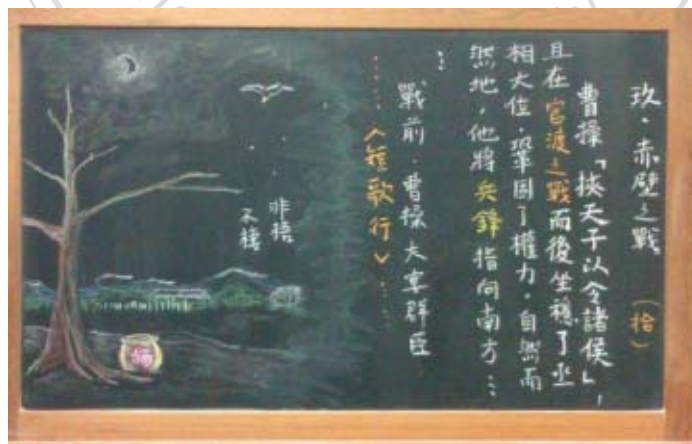 玖、赤壁之戰
(拾)
曹操「挾天子以令諸侯」,
且在官渡之戰而後坐穩了丞
相大位,鞏固了權力。自然而
然地,他將兵鋒指向南方…
…
戰前,曹操大宴群臣
……
〈短歌行〉……
非梧
不棲